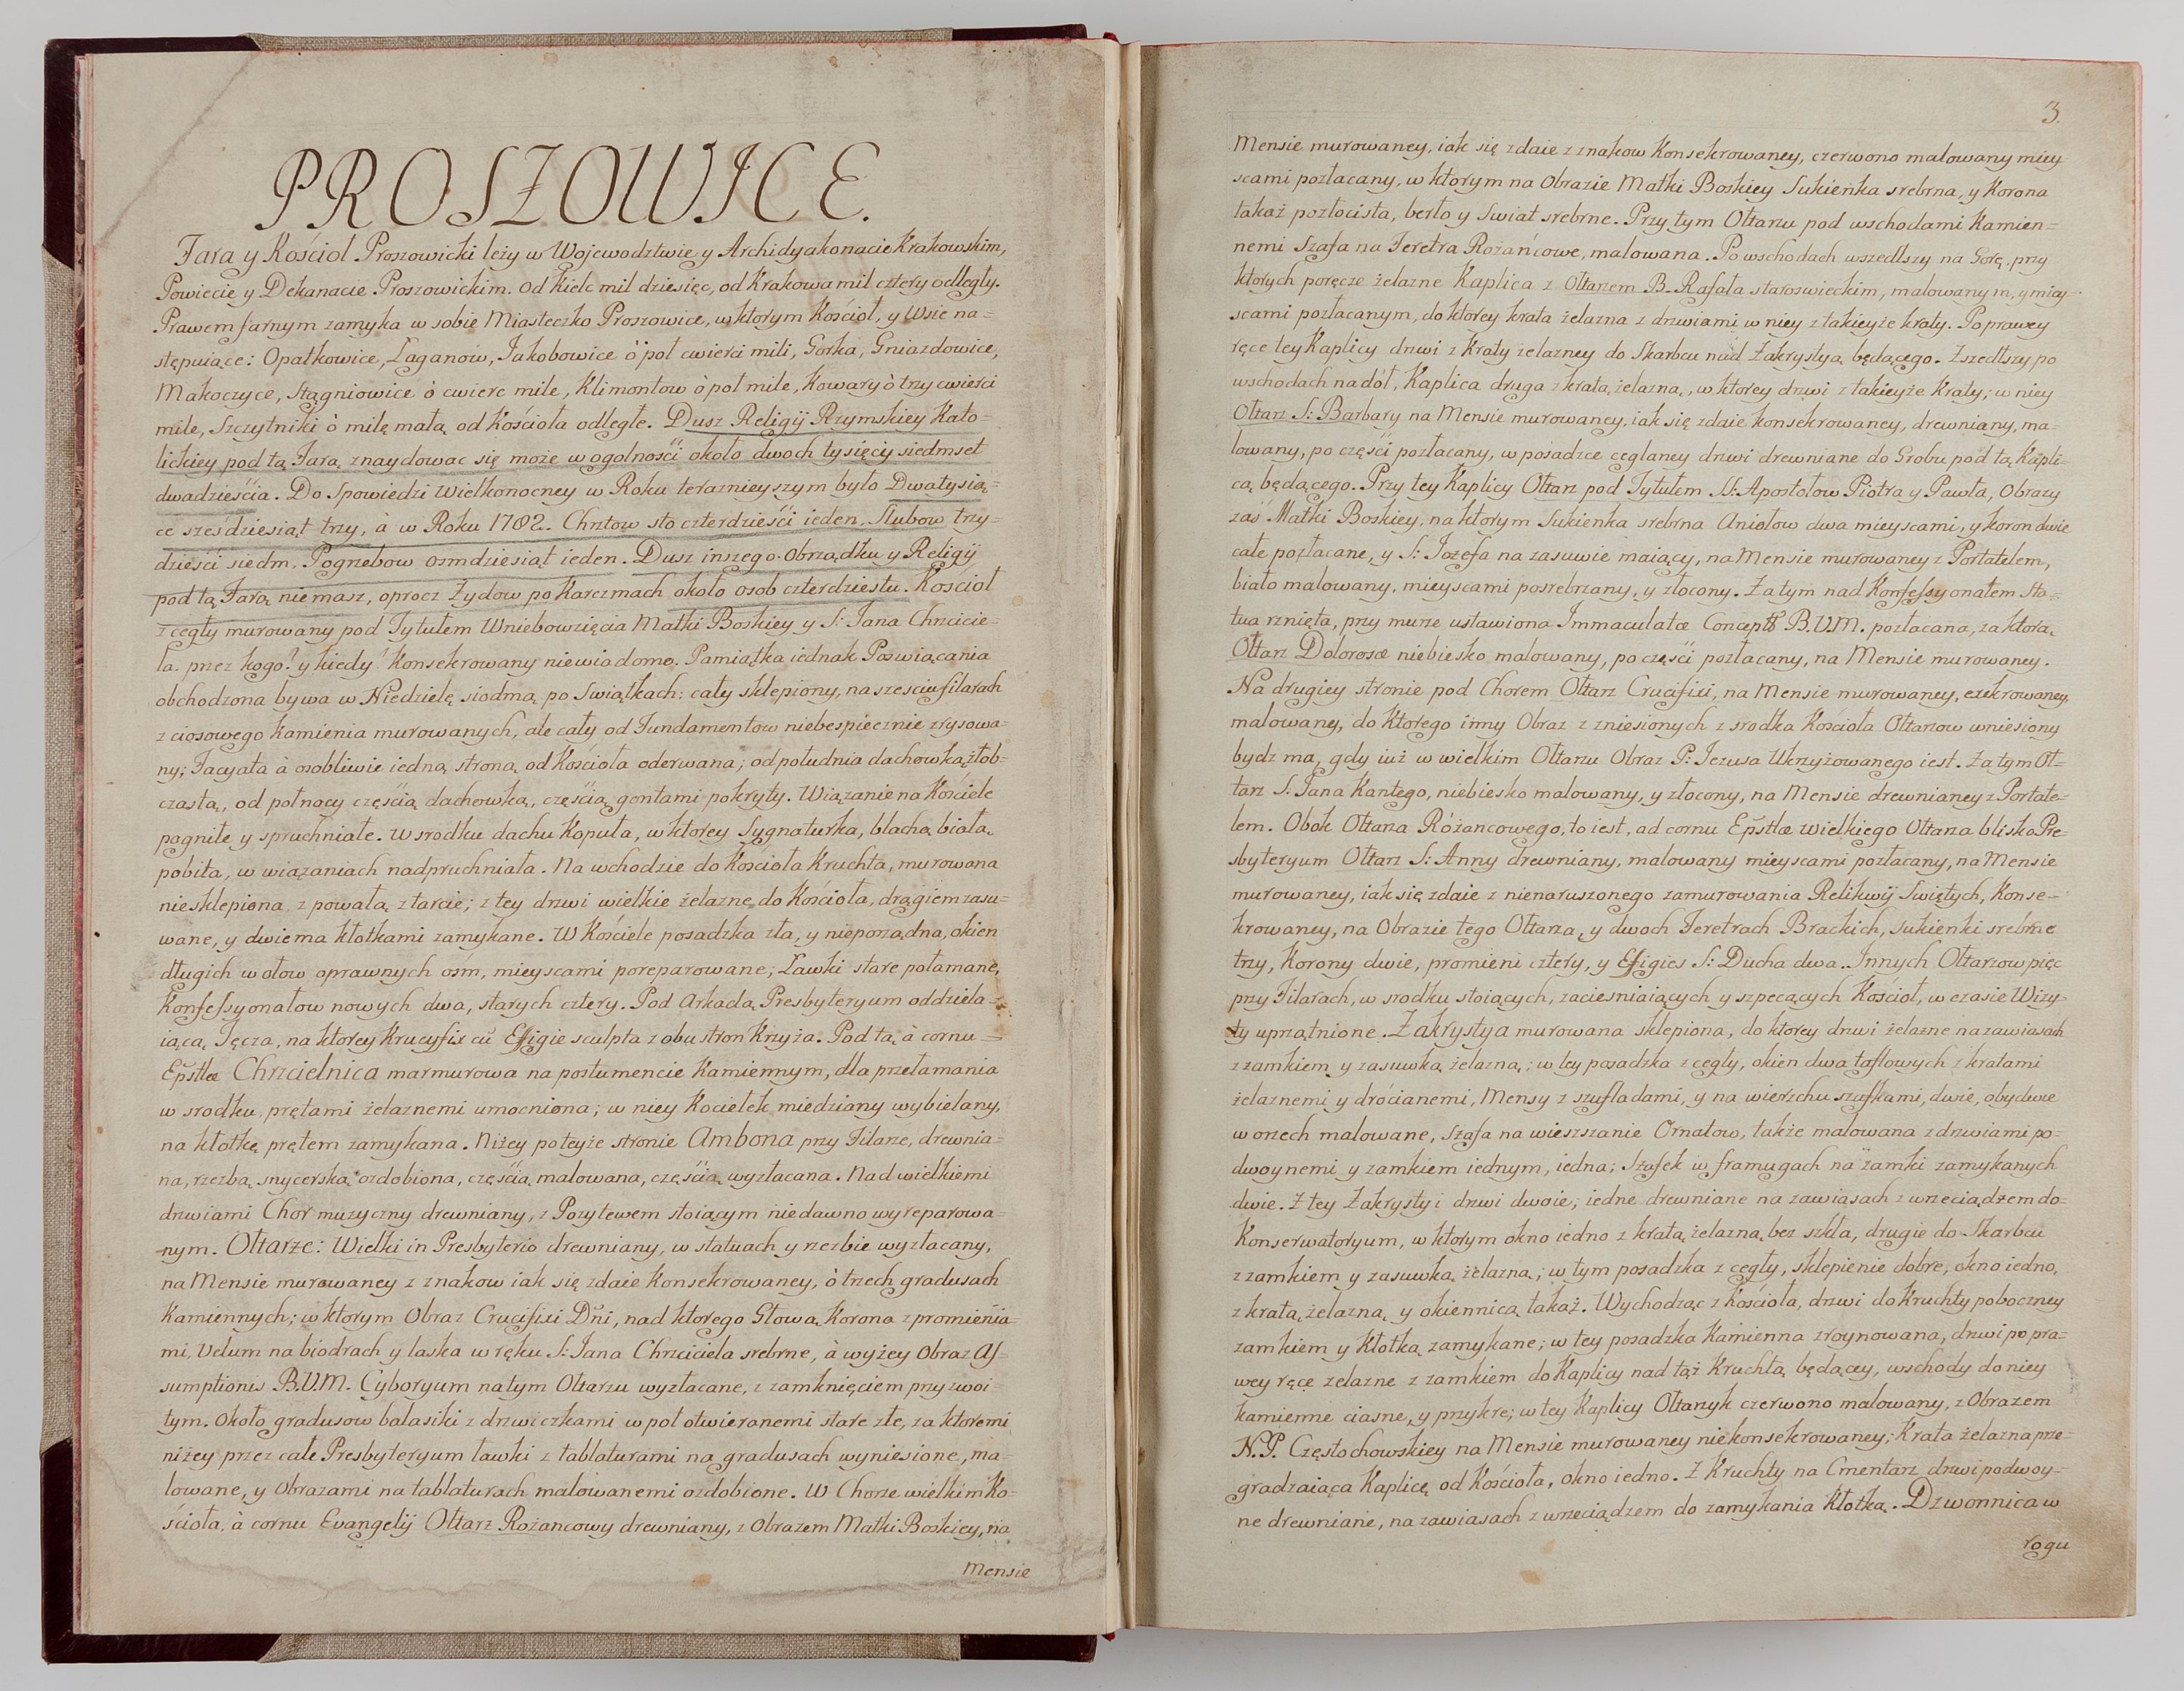 PROSZOWICE.
Fara y Kościoł Proszowicki leży w Wojewodztwie y Archidyakonacie Krakowskim,
Powiecie y Dekanacie Proszowickim. od Kielc mil dziesięc, od Krakowa mil cztery odległy.
Prawem farnym zamyka w sobie Miasteczko Proszowice, w ktorym Kościoł, y Wsie na=
stępuiące: Opatkowice, Łaganow, Jakobowice ò poł cwierci mili, Gorka, Gniazdowice,
Makoczyce, Stągniowice ò cwierc mile, Klimontow ò poł mile, Kowary ò trzy cwierci
mile, Szczytniki ò milę małą od Kościoła odległe. Dusz Religij Rzymskiey Kato=
lickiey pod tą Farą znaydowac się może w ogolności około dwoch tysięcy siedmset
dwadzieścia. Do Spowiedzi Wielkonocney w Roku teraznieyszym było Dwatysią=
ce szesdziesiąt trzy, à w Roku 1782. Chrztow sto czterdzieści ieden, Slubow trzy=
dzieści siedm. Pogrzebow osmdziesiąt ieden. Dusz inszego Obrządku y Religij
pod tą Farą niemasz, oprocz Zydow po Karczmach około osob czterdziestu. Kościoł
z cegły murowany pod Tytułem Wniebowzięcia Matki Boskiey y S: Jana Chrzcicie=
la. przez kogo? y kiedy? Konsekrowany niewiadomo. Pamiątka iednak Poswiącania
obchodzona bywa w Niedzielę siodmą po Swiątkach: cały sklepiony, na szesciu filarach
z ciosowego kamienia murowanych, ale cały od Fundamentow niebespiecznie zrysowa=
ny; Facyata à osobliwie iedną stroną od Kościoła oderwana; od południa dachowką żłob=
czastą, od połnocy częścią dachowką, częścią gontami pokryty. Wiązanie na Kościele
pogniłe y spruchniałe. W srodku dachu Kopuła, w ktorey Sygnaturka, blachą białą
pobita, w wiązaniach nadpruchniała. Na wchodzie do Kościoła Kruchta, murowana
niesklepiona z powałą z tarcic; z tey drzwi wielkie żelazne do Kościoła, drągiem zasu=
wane, y dwiema kłotkami zamykane. W Kościele posadzka zła, y nieporządna, okien
długich w ołow oprawnych ośm, mieyscami poreparowane; Ławki stare połamane,
Konfessyonałow nowych dwa, starych cztery. Pod Arkadą Presbyteryum oddziela=
iącą Tęcza, na ktorey Krucyfix cũ Effigie sculpta z obu stron Krzyża. Pod tą à cornu =
Epstlæ Chrzcielnica marmurowa na postumencie Kamiennym, dla przełamania
w srodku prętami żelaznemi umocniona; w niey Kociełek miedziany wybielany,
na kłotkę prętem zamykana. Niżey po teyże stronie Ambona przy Filarze, drewnia=
na, rzezbą snycerską ozdobiona, częścią malowana, częścią wyzłacana. Nad wielkiemi
drzwiami Chor muzyczny drewniany, z Pozytewem stoiącym niedawno wyreparowa=
nym. Ołtarze: Wielki in Presbyterio drewniany, w statuach y rzezbie wyzłacany,
na Mensie murowaney z znakow iak się zdaie Konsekrowaney, ò trzech gradusach
Kamiennych; w ktorym Obraz Crucifixi Dñi, nad ktorego Głową Korona z promienia
mi, Velum na biodrach y laska w ręku S: Jana Chrzciciela srebrne, à wyżey Obraz As=
sumptionis B.V.M. Cyboryum na tym Ołtarzu wyzłacane, z zamknięciem przyzwoi
tym. Około gradusow balasiki z drzwiczkami w poł otwieranemi stare złe, za ktoremi
niżey przez całe Presbyteryum ławki z tablaturami na gradusach wyniesione, ma=
lowane, y Obrazami na tablaturach malowanemi ozdobione. W Chorze wielkim Ko=
ścioła, à cornu Evangelij Ołtarz Rożancowy drewniany, z Obrazem Matki Boskiey, na
Mensie
3.
Mensie murowaney, iak się zdaie z znakow Konsekrowaney, czerwono malowany miey
scami pozłacany, w ktorym na Obrazie Matki Boskiey Sukienka srebrna, y Korona
takaż pozłocista, berło y Swiat srebrne. Przy tym Ołtarzu pod wschodami Kamien=
nemi Szafa na Feretra Rożańcowe, malowana. Po wschodach wszedłszy na Gorę, przy
ktorych poręcze żelazne Kaplica z Ołtarzem B. Rafała staroswieckim, malowanym, y miey=
scami pozłacanym, do ktorey krata żelazna z drzwiami w niey z takieyże kraty. Po prawey
ręce tey Kaplicy drzwi z Kraty żelazney do Skarbcu nad Zakrystyą będącego. Zszedłszy po
wschodach na doł, Kaplica druga z kratą żelazną, w ktorey drzwi z takieyże Kraty; w niey
Ołtarz S: Barbary na Mensie murowaney, iak się zdaie konsekrowaney, drewniany, ma=
lowany, po części pozłacany, w posadzce ceglaney drzwi drewniane do Grobu pod tą Kapli=
cą będącego. Przy tey Kaplicy Ołtarz pod Tytułem SS: Apostołow Piotra y Pawła, Obrazy
zaś Matki Boskiey, na ktorym Sukienka srebrna Aniołow dwa mieyscami, y koron dwie
całe pozłacane, y S: Jozefa na zasuwie maiący, na Mensie murowaney z Portatelem,
biało malowany, mieyscami posrebrzany, y złocony. Za tym nad Konfessyonałem Sta=
tua rznięta, przy murze ustawiona Immaculatæ Concept. B.V.M. pozłacana, za ktorą
Ołtarz Dolorosæ niebiesko malowany, po części pozłacany, na Mensie murowaney.
Na drugiey stronie pod Chorem Ołtarz Crucifixi, na Mensie murowaney, exekrowaney,
malowany, do ktorego inny Obraz z zniesionych z srodka Kościoła Ołtarzow wniesiony
bydz ma, gdy iuż w wielkim Ołtarzu Obraz P: Jezusa Ukrzyżowanego iest. Za tym Oł=
tarz S: Jana Kantego, niebiesko malowany, y złocony, na Mensie drewnianey z Portate=
lem. Obok Ołtarza Różancowego, to iest, ad cornu Epstlæ wielkiego Ołtarza blisko Pre=
sbyteryum Ołtarz S: Anny drewniany, malowany mieyscami pozłacany, na Mensie
murowaney, iak się zdaie z nienaruszonego zamurowania Relikwij Swiętych, Konse=
krowaney, na Obrazie tego Ołtarza, y dwoch Feretrach Brackich, sukienki srebrne
trzy, Korony dwie, promieni cztery, y Effigies S: Ducha dwa. Innych Ołtarzow pięc
przy Filarach, w srodku stoiących, zaciesniaiących y szpecących Kościoł, w czasie Wizy=
ty uprzątnione. Zakrystya murowana sklepiona, do ktorey drzwi żelazne na zawiasach
z zamkiem y zasuwką żelazną; w tey posadzka z cegły, okien dwa taflowych z kratami
żelaznemi y drócianemi, Mensy z szufladami, y na wierzchu szafkami, dwie, obydwie
w orzech malowane, Szafa na wieszszanie Ornatow, także malowana z drzwiami po=
dwoynemi y zamkiem iednym, iedna; Szafek w framugach na zamki zamykanych
dwie. Z tey Zakrystyi drzwi dwoie; iedne drewniane na zawiasach z wrzeciądzem do=
Konserwatoryum, w ktorym okno iedno z kratą żelazną bez szkła, drugie do Skarbcu
z zamkiem y zasuwką żelazną; w tym posadzka z cegły, sklepienie dobre, okno iedno,
z kratą żelazną y okiennicą takąż. Wychodząc z Kościoła, drzwi do Kruchty poboczney
zamkiem y Kłotką zamykane; w tey posadzka Kamienna zroynowana, drzwi po pra=
wey ręce żelazne z zamkiem do Kaplicy nad tąż Kruchtą będącey, wschody do niey
kamienne ciasne, y przykre; w tey Kaplicy Ołtarzyk czerwono malowany, z Obrazem
N.P. Częstochowskiey na Mensie murowaney niekonsekrowaney; Krata żelazna prze=
gradzaiąca Kaplicę od Kościoła, okno iedno. Z Kruchty na Cmentarz drzwi podwoy=
ne drewniane, na zawiasach z wrzeciądzem do zamykania Kłotką. Dzwonnica w
rogu